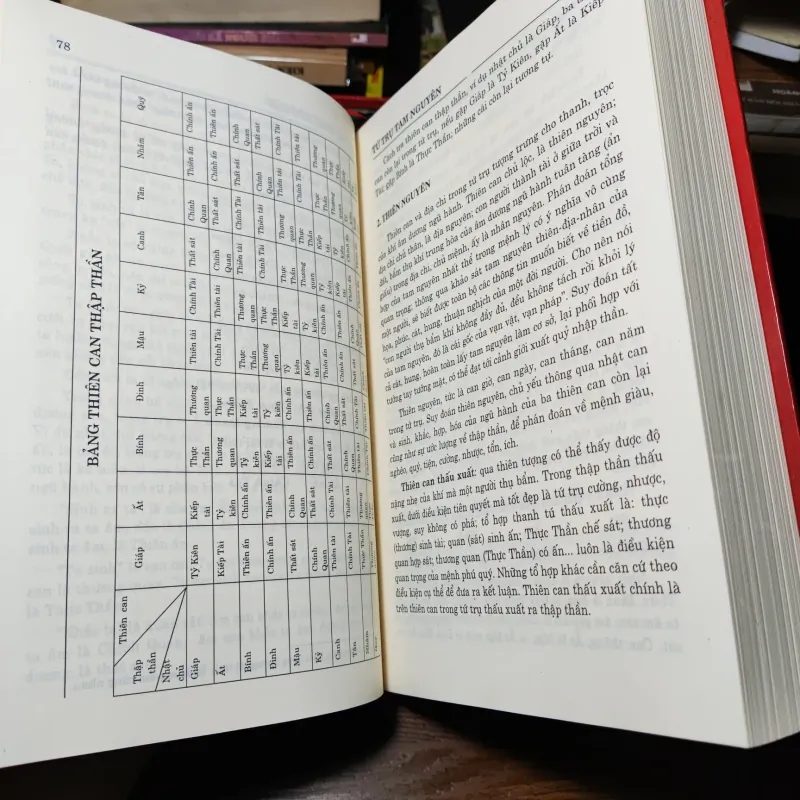 78
BẢNG THIÊN CAN THẬP THẦN
Thiên can
Thập thần
Nhật chủ
Giáp Ất Bính Đinh Mậu Kỷ Canh Tân Nhâm Quý
Giáp Tỷ Kiên Kiếp tài Thực Thần Thương quan Thiên tài Chính Tài Thất sát Chính Quan Thiên ấn Chính ấn
Ất Kiếp Tài Tỷ kiên Thương quan Thực Thần Chính Tài Thiên tài Chính Quan Thất sát Chính ấn Thiên ấn
Bính Thiên ấn Chính ấn Tỷ kiên Kiếp tài Thực Thần Thương quan Thiên tài Chính Tài Thất sát Chính Quan
Đinh Chính ấn Thiên ấn Kiếp tài Tỷ kiên Thương quan Thực Thần Chính Tài Thiên tài Chính Quan Thất sát
Mậu Thất sát Chính Quan Thiên ấn Chính ấn Tỷ kiên Kiếp tài Thực Thần Thương quan Thiên tài Chính Tài
Kỷ Chính Quan Thất sát Chính ấn Thiên ấn Kiếp tài Tỷ kiên Thương quan Thực Thần Chính Tài Thiên tài
Canh Thiên tài Chính Tài Thất sát Chính Quan Thiên ấn Chính ấn Tỷ kiên Kiếp tài Thực Thần Thương quan
Tân Chính Tài Thiên tài Chính Quan Thất sát Chính ấn Thiên ấn
Nhâm Thực Thần
TỨ TRỤ TAM NGUYÊN
Cách tra thiên can thập thần, ví dụ nhật chủ là Giáp, ba
can còn lại trong tứ trụ, nếu gặp Giáp là Tỷ Kiên, gặp Ất là Kiếp
Tài, gặp Bính là Thực Thần, những cái còn lại tương tự.
2. THIÊN NGUYÊN
Thiên can và địa chi trong tứ trụ tượng trưng cho thanh, trọc
của khí âm dương ngũ hành. Thiên can chủ lộc, là thiên nguyên;
địa chi chủ thân, là địa nguyên; con người thành tài ở giữa trời và
đất, bẩm thụ khí trung hòa của âm dương ngũ hành tuần tàng (ẩn
giấu) trong địa chi, chủ mệnh, ấy là nhân nguyên. Phán đoán tổng
hợp của tam nguyên nhất thể trong mệnh lý có ý nghĩa vô cùng
quan trọng, thông qua khảo sát tam nguyên thiên-địa-nhân của
một người, sẽ biết được toàn bộ các thông tin muốn biết về tiền đồ,
họa, phước, cát, hung, thuận nghịch của một đời người. Cho nên nói
"con người thụ bẩm khí không đầy đủ, đều không tách rời khỏi lý
của tam nguyên, đó là cái gốc của vạn vật, vạn pháp". Suy đoán tất
cả cát, hung, hoàn toàn lấy tam nguyên làm cơ sở, lại phối hợp với
tướng tay tướng mặt, có thể đạt tới cảnh giới xuất quỷ nhập thần.
Thiên nguyên, tức là can giờ, can ngày, can tháng, can năm
trong tứ trụ. Suy đoán thiên nguyên, chủ yếu thông qua nhật can
và sinh, khắc, hợp, hóa của ngũ hành của ba thiên can còn lại
cũng như sự ước lượng về thập thần, để phán đoán về mệnh giàu,
nghèo, quý, tiện, cường, nhược, tổn, ích.
Thiên can thấu xuất: qua thiên tượng có thể thấy được độ
nặng nhẹ của khí mà một người thụ bẩm. Trong thập thần thấu
xuất, dưới điều kiện tiên quyết là tứ trụ cường, nhược,
vượng, suy không có phá; tổ hợp thanh tú thấu xuất là: thực
(thương) sinh tài; quan (sát) sinh ấn; Thực Thần chế sát; thương
quan hợp sát; thương quan (Thực Thần) có ấn... luôn là điều kiện
quan trọng của mệnh phú quý. Những tổ hợp khác cần căn cứ theo
điều kiện cụ thể để đưa ra kết luận. Thiên can thấu xuất chính là
trên thiên can trong tứ trụ thấu xuất ra thập thần.